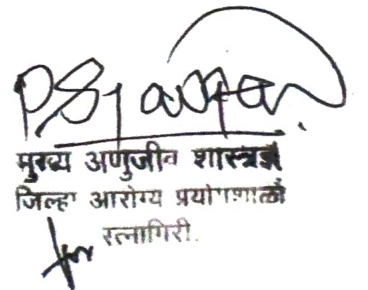 मुख्य अणुजीव शास्त्रज्ञ
जिल्हा आरोग्य प्रयोगशाळा
for रत्नागिरी.